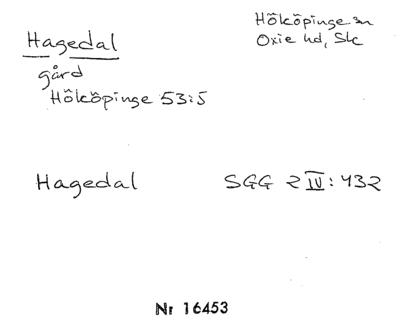 Hagedal
Hököpinge sn
Oxie hd, Sk
gård
Hököpinge 53:5
Hagedal
SGG 2 IV: 432
Nr 16453